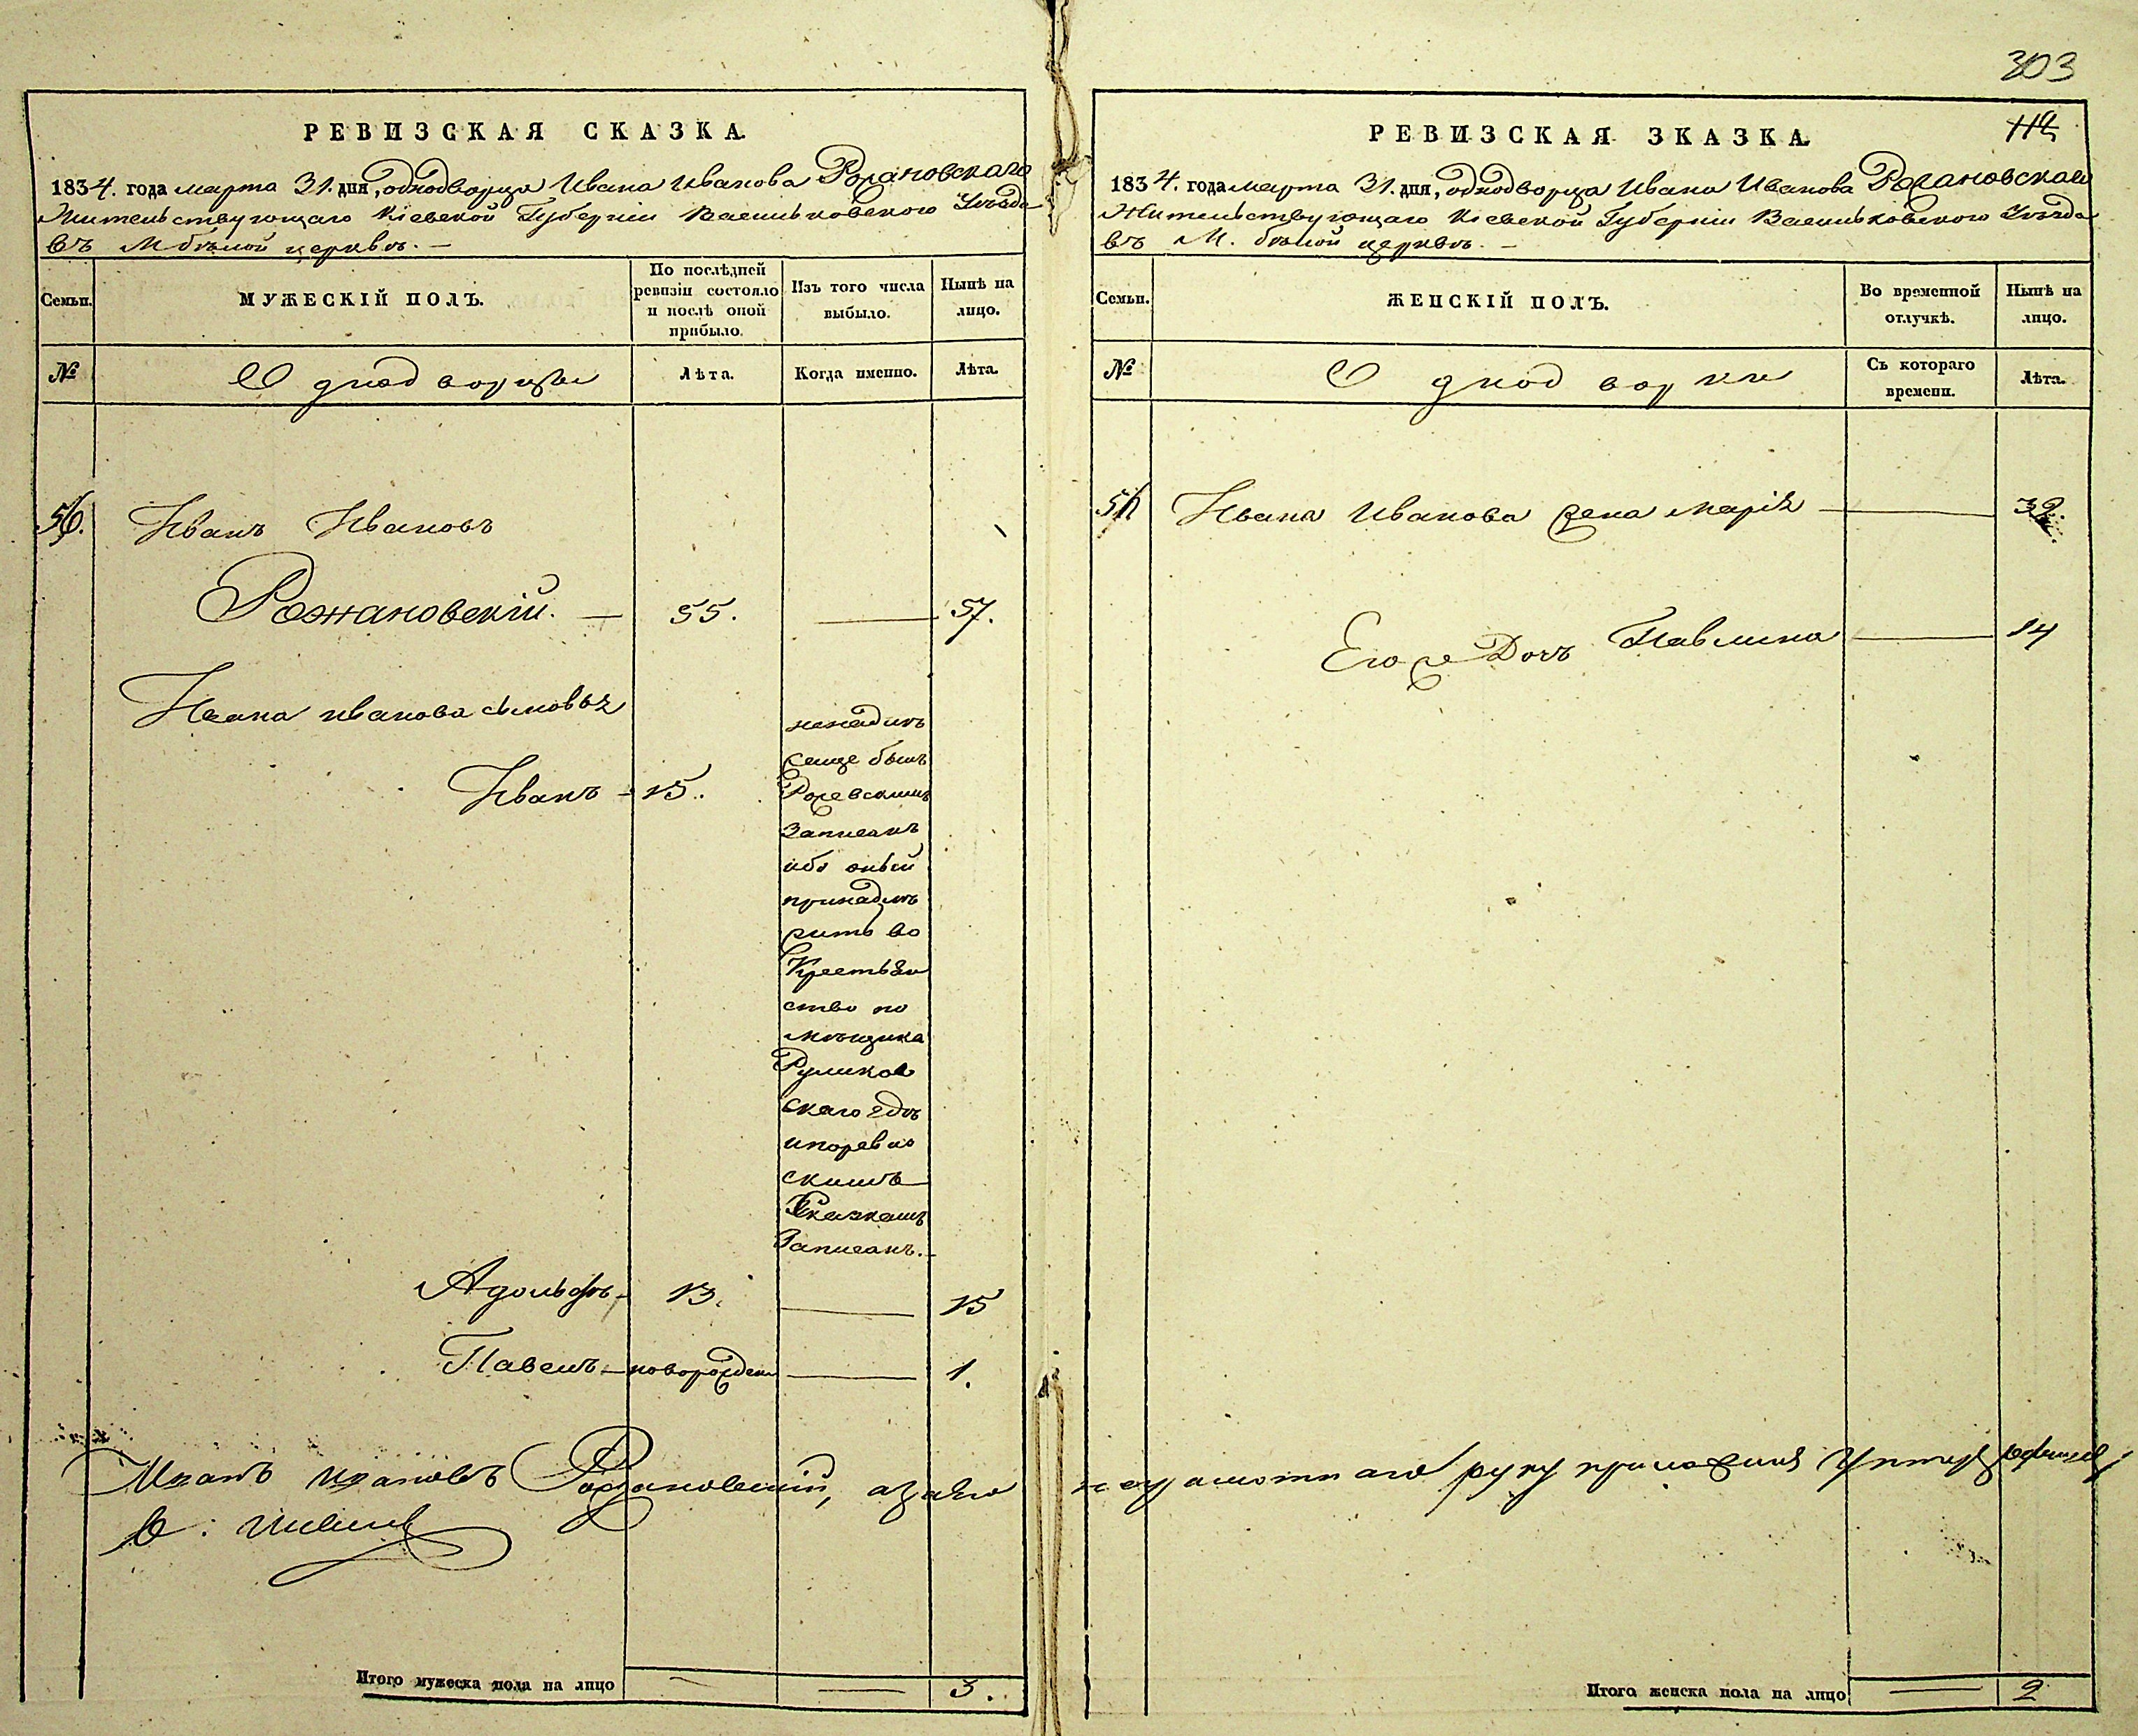 303
РЕВИЗСКАЯ СКАЗКА.
1834. года марта 31. дня, однодворца Ивана Иванова Рожановскаго
Жительствующаго Кіевской Губерніи Васильковского Уѣзда
въ М бѣлой церквѣ. —
Семьи.
МУЖЕСКІЙ ПОЛЪ.
По послѣдней ревизіи состояло и послѣ оной прибыло.
Изъ того числа выбыло.
Нынѣ на лицо.
№
Однодворцы
Лѣта.
Когда именно.
Лѣта.
56.
Иванъ Ивановъ
Рожановскій. — 55. — 57.
Ивана иванова сыновья
Иванъ - 15.
ненадлѣ
жаще былъ
Запис​анъ
ибо оный
принадлѣ
житъ во
Крестьян
ство по
мѣщика
Руликов
скаго гдѣ
скимъ
Сказкамъ
Записанъ. —
Адольфъ - 13. — 15
Павелъ — новорожден — 1.
Иванъ Ивановъ Рожановскій, а за его
Итого мужеска пола на лицо — — 3.
РЕВИЗСКАЯ ЗКАЗКА.
112
1834. года марта 31. дня, однодворца Ивана Иванова Рожановскаго
Жительствующаго Кіевской Губерніи Васильковского Уѣзда
въ М. бѣлой церквѣ. —
Семьи.
ЖЕНСКІЙ ПОЛЪ.
Во временной отлучкѣ.
Нынѣ на лицо.
№
Однодворки
Съ котораго времени.
Лѣта.
56
Ивана Иванова жена Марія — 32.
Его же Дочъ Павлина — 14
неграмотнаго руку приложилъ
Итого женска пола на лицо — 2